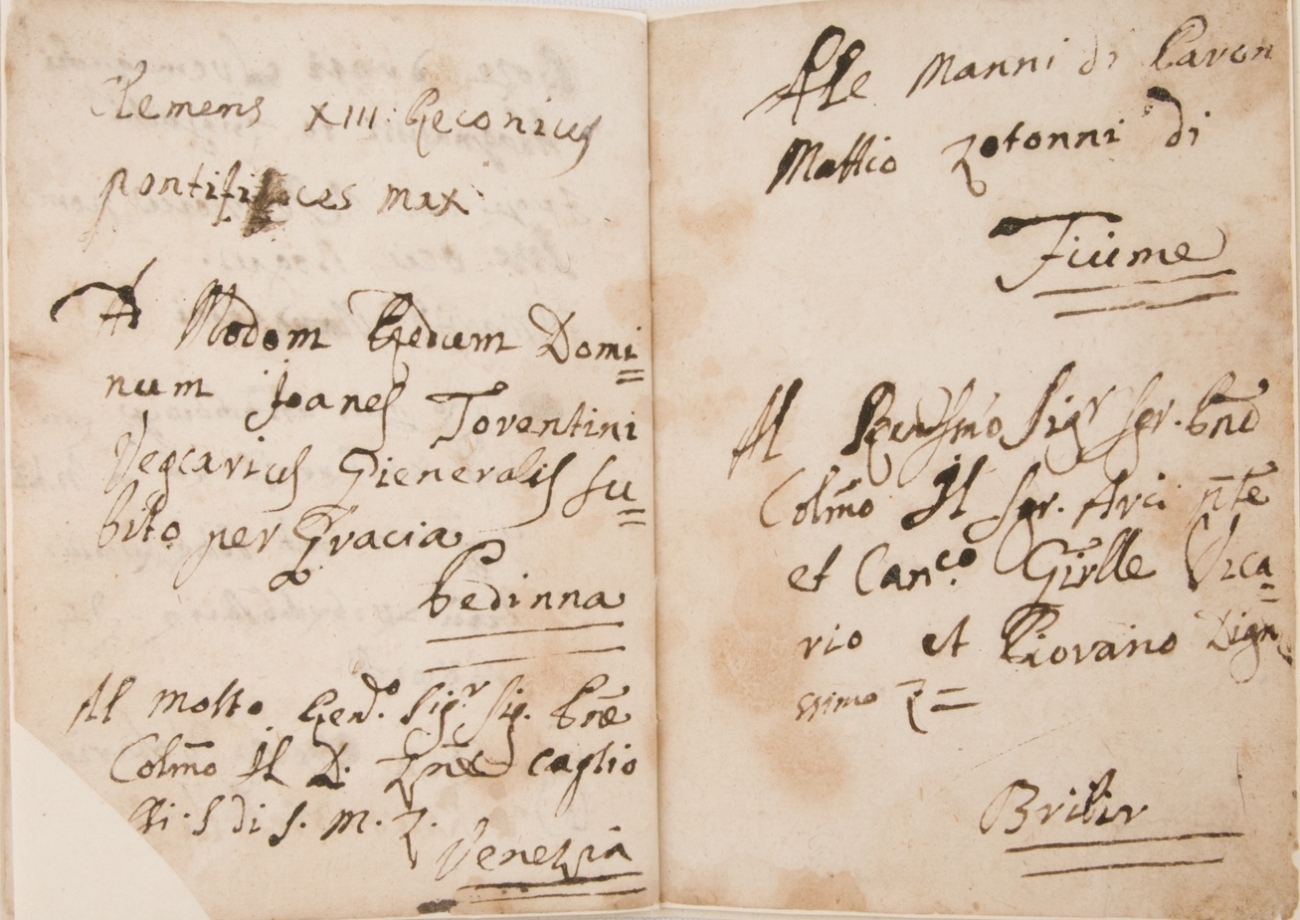 Clemens XIII: Reconicus
pontifi ces max:
A Modom Redum Domi=
num Joanes Torentini
Vegcarius Gieneralis su=
bito per Gracia
Bedinna
Al Molto Rend.o Sigr Sig.
Colmo Il D. caglio
S di S. M.
Venetzia
Alle Manni di Pavon
Mattio Zotonni di
Fiume
Al Sigr Sgr.
Colmo Il Sgr. Arci nte
et Canco. Girlle Vica=
rio et Piovano Dign
ssimo
Bribir